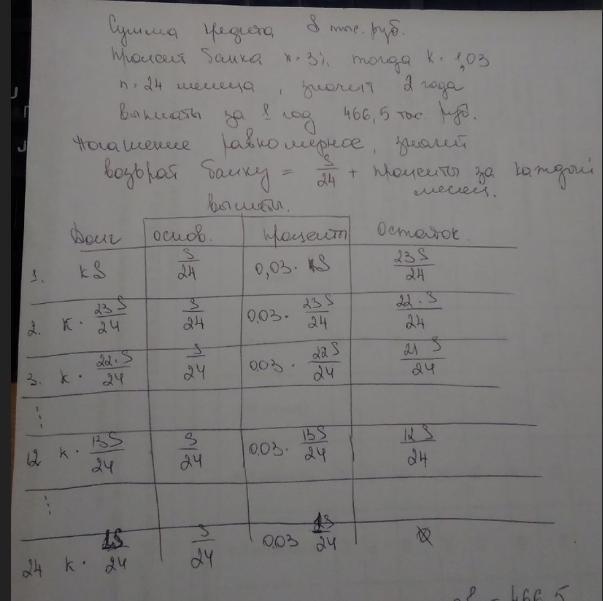 Сумма кредита S тыс. руб.
Процент банка r = 3% тогда k = 1,03
n = 24 месяца, значит 2 года
выплаты за 1 год 466,5 тыс руб.
Погашение равномерное, значит
возврат банку = S/24 + проценты за каждый месяц.
выплаты.
Долг основ. проценты Остаток
1. kS S/24 0,03 · S 23S/24
2. k · 23S/24 S/24 0,03 · 23S/24 22·S/24
3. k · 22·S/24 S/24 0,03 · 22S/24 21S/24
⋮
12 k · 13S/24 S/24 0,03 · 13S/24 12S/24
⋮
24 k · 1S/24 S/24 0,03 1S/24 0
= 466,5